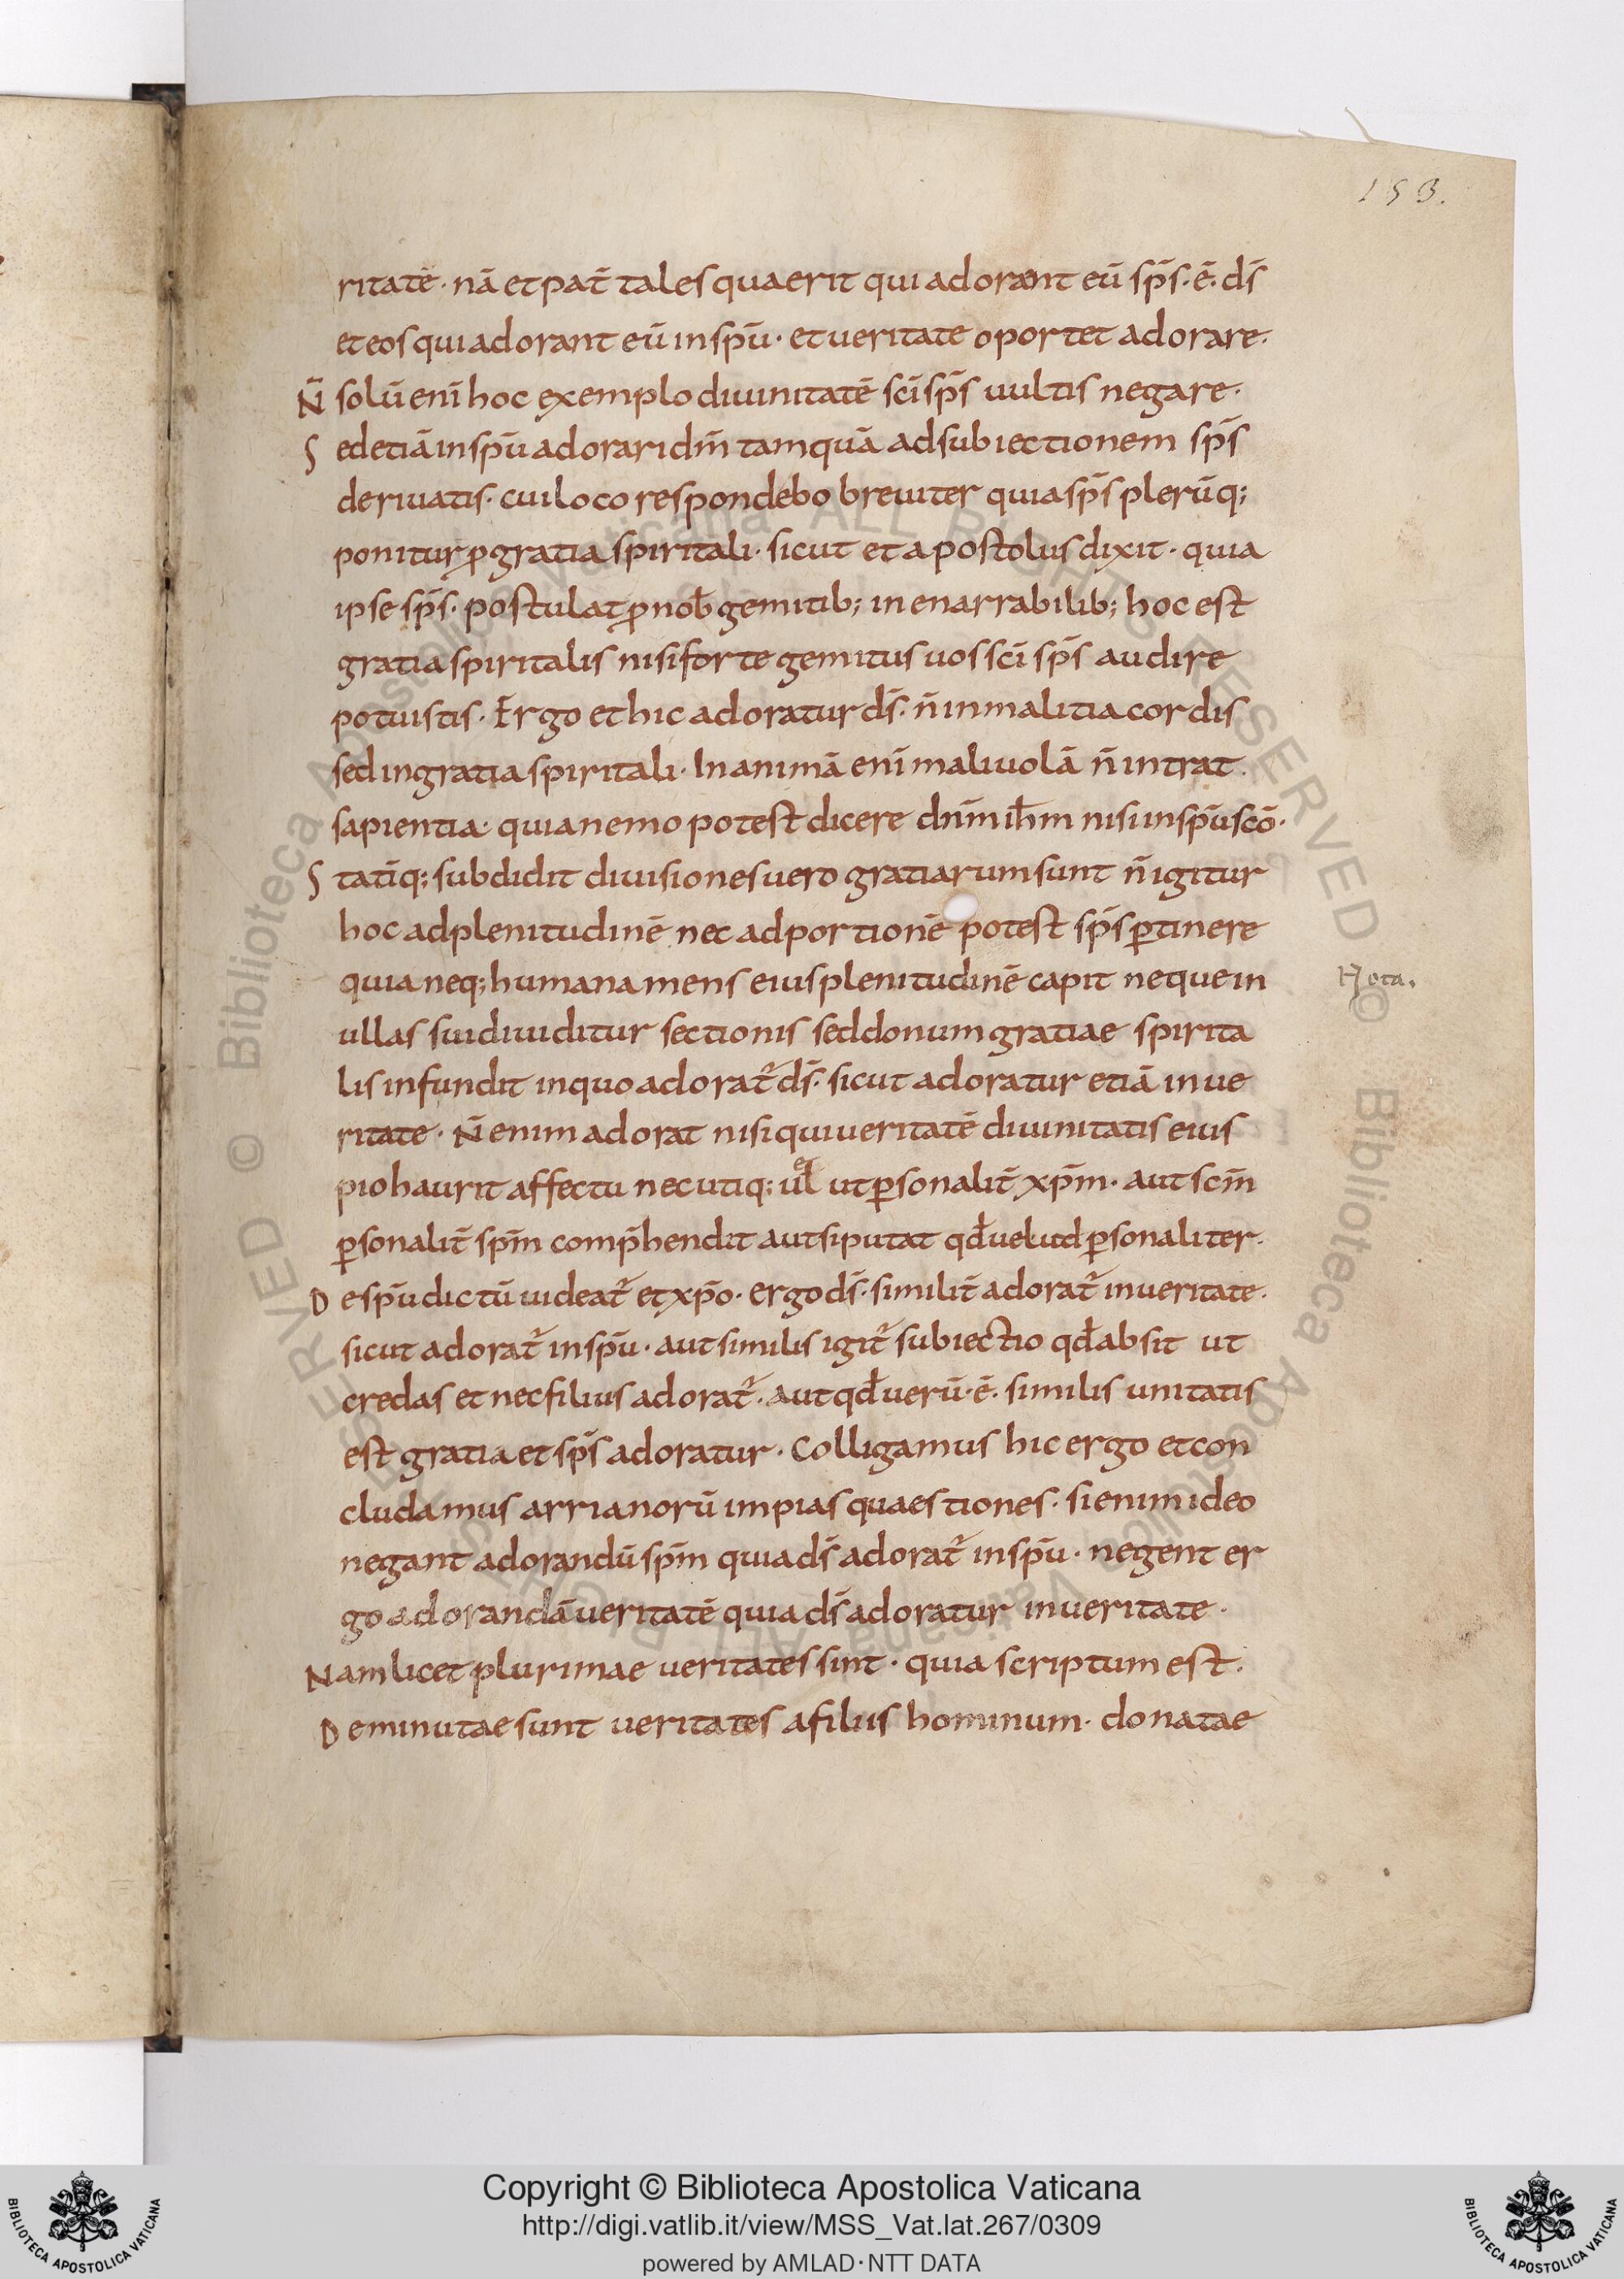 153.
ritatē · nā et pat̄ tales quaerit qui adorant eū sp̄s · ē · ds̄
et eos qui adorant eū in spū · et ueritate oportet adorare ·
N̄ solū enī hoc exemplo diuinitatē scī sp̄s uultis negare ·
Sed etiā in spū adorari dm̄ tamquā ad subiectionem sp̄s
deriuatis · cui loco respondebo breuiter quia sp̄s plerūq;
ponitur ꝓ gratia spiritali · sicut et apostolus dixit · quia
ipse sp̄s · postulat ꝓ nob̄ gemitib; inenarrabilib; hoc est
gratia spiritalis nisi forte gemitus uos scī sp̄s audire
potuistis · Ergo et hic adoratur ds̄ · n̄ in malitia cordis
sed in gratia spiritali · In animā enī maliuolā n̄ intrat
sapientia · quia nemo potest dicere dn̄m ih̄m nisi in spū scō ·
Statīq; subdidit diuisiones uero gratiarum sunt n̄ igitur
hoc ad plenitudinē nec ad portionē potest sp̄s ꝑtinere
quia neq; humana mens eius plenitudinē capit neque in
Nota.
ullas sui diuiditur sectionis sed donum gratiae spirita
lis infundit in quo adorat᷑ ds̄ · sicut adoratur etiā in ue
ritate · N̄ enim adorat nisi qui ueritatē diuinitatis eius
pio haurit affectu nec utiq; uel ut ꝑsonalit̄ xp̄m · aut scm̄
ꝑsonalit̄ spm̄ comp̄hendit aut si putat qđ uelud ꝑsonaliter ·
De spū dictū uideat᷑ et xp̄o · Ergo ds̄ · similit̄ adorat᷑ in ueritate ·
sicut adorat᷑ in spū · aut similis igit᷑ subiectio qđ absit ut
credas et nec filius adorat᷑ · aut qđ uerū · ē · similis unitatis
est gratia et sp̄s adoratur · Colligamus hic ergo et con
cludamus arrianorū impias quaestiones · si enim ideo
negant adorandū spm̄ quia ds̄ adorat᷑ in spū · negent er
go adorandā ueritatē quia ds̄ adoratur in ueritate ·
Nam licet plurimae ueritates sint · quia scriptum est ·
Deminutae sunt ueritates a filiis hominum · donatae
© Biblioteca Apostolica Vaticana ALL RIGHTS RESERVED
Copyright © Biblioteca Apostolica Vaticana
http://digi.vatlib.it/view/MSS_Vat.lat.267/0309
powered by AMLAD·NTT DATA
BIBLIOTECA APOSTOLICA VATICANA
BIBLIOTECA APOSTOLICA VATICANA